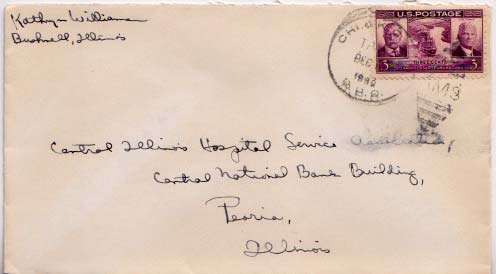 Kathryn Williams
Bushnell, Illinois
U.S. POSTAGE
3 3
DEC
1939
R.P.O.
Central Illinois Hospital Service Association,
Central National Bank Building,
Peoria,
Illinois